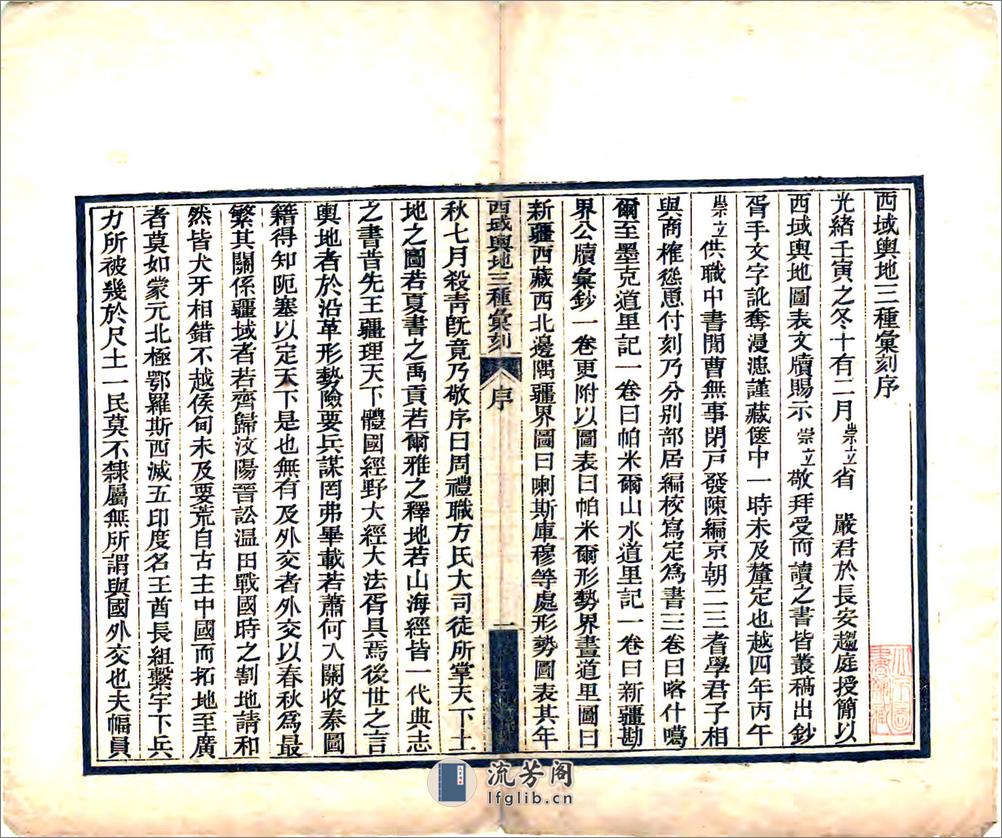 西域輿地三種彙刻序
光緒壬寅之冬十有二月崇立省 嚴君於長安趨庭授簡以
西域輿地圖表文牘賜示崇立敬拜受而讀之書皆叢稿出鈔
胥手文字訛奪漫漶謹藏篋中一時未及釐定也越四年丙午
崇立供職中書閒曹無事閉戸發陳編京朝二三耆學君子相
與商榷慫恿付刻乃分别部居編校寫定爲書三卷曰喀什噶
爾至墨克道里記一卷曰帕米爾山水道里記一卷曰新疆勘
界公牘彙鈔一卷更附以圖表曰帕米爾形勢界畫道里圖曰
新疆西藏西北邊隅疆界圖曰喇斯庫穆等處形勢圖表其年
西域輿地三種彙刻 序 一
秋七月殺靑旣竟乃敬序曰周禮職方氏大司徒所掌天下土
地之圖若夏書之禹貢若爾雅之釋地若山海經皆一代典志
之書昔先王疆理天下體國經野大經大法胥具焉後世之言
輿地者於沿革形勢險要兵謀罔弗畢載若蕭何入關收秦圖
籍得知阨塞以定天下是也無有及外交者外交以春秋爲最
繁其關係疆域者若齊歸汶陽晉訟温田戰國時之割地請和
然皆犬牙相錯不越侯甸未及要荒自古主中國而拓地至廣
者莫如蒙元北極鄂羅斯西滅五印度名王酋長組繫宇下兵
力所被幾於尺土一民莫不隸屬無所謂與國外交也夫幅員
流芳阁
lfglib.cn